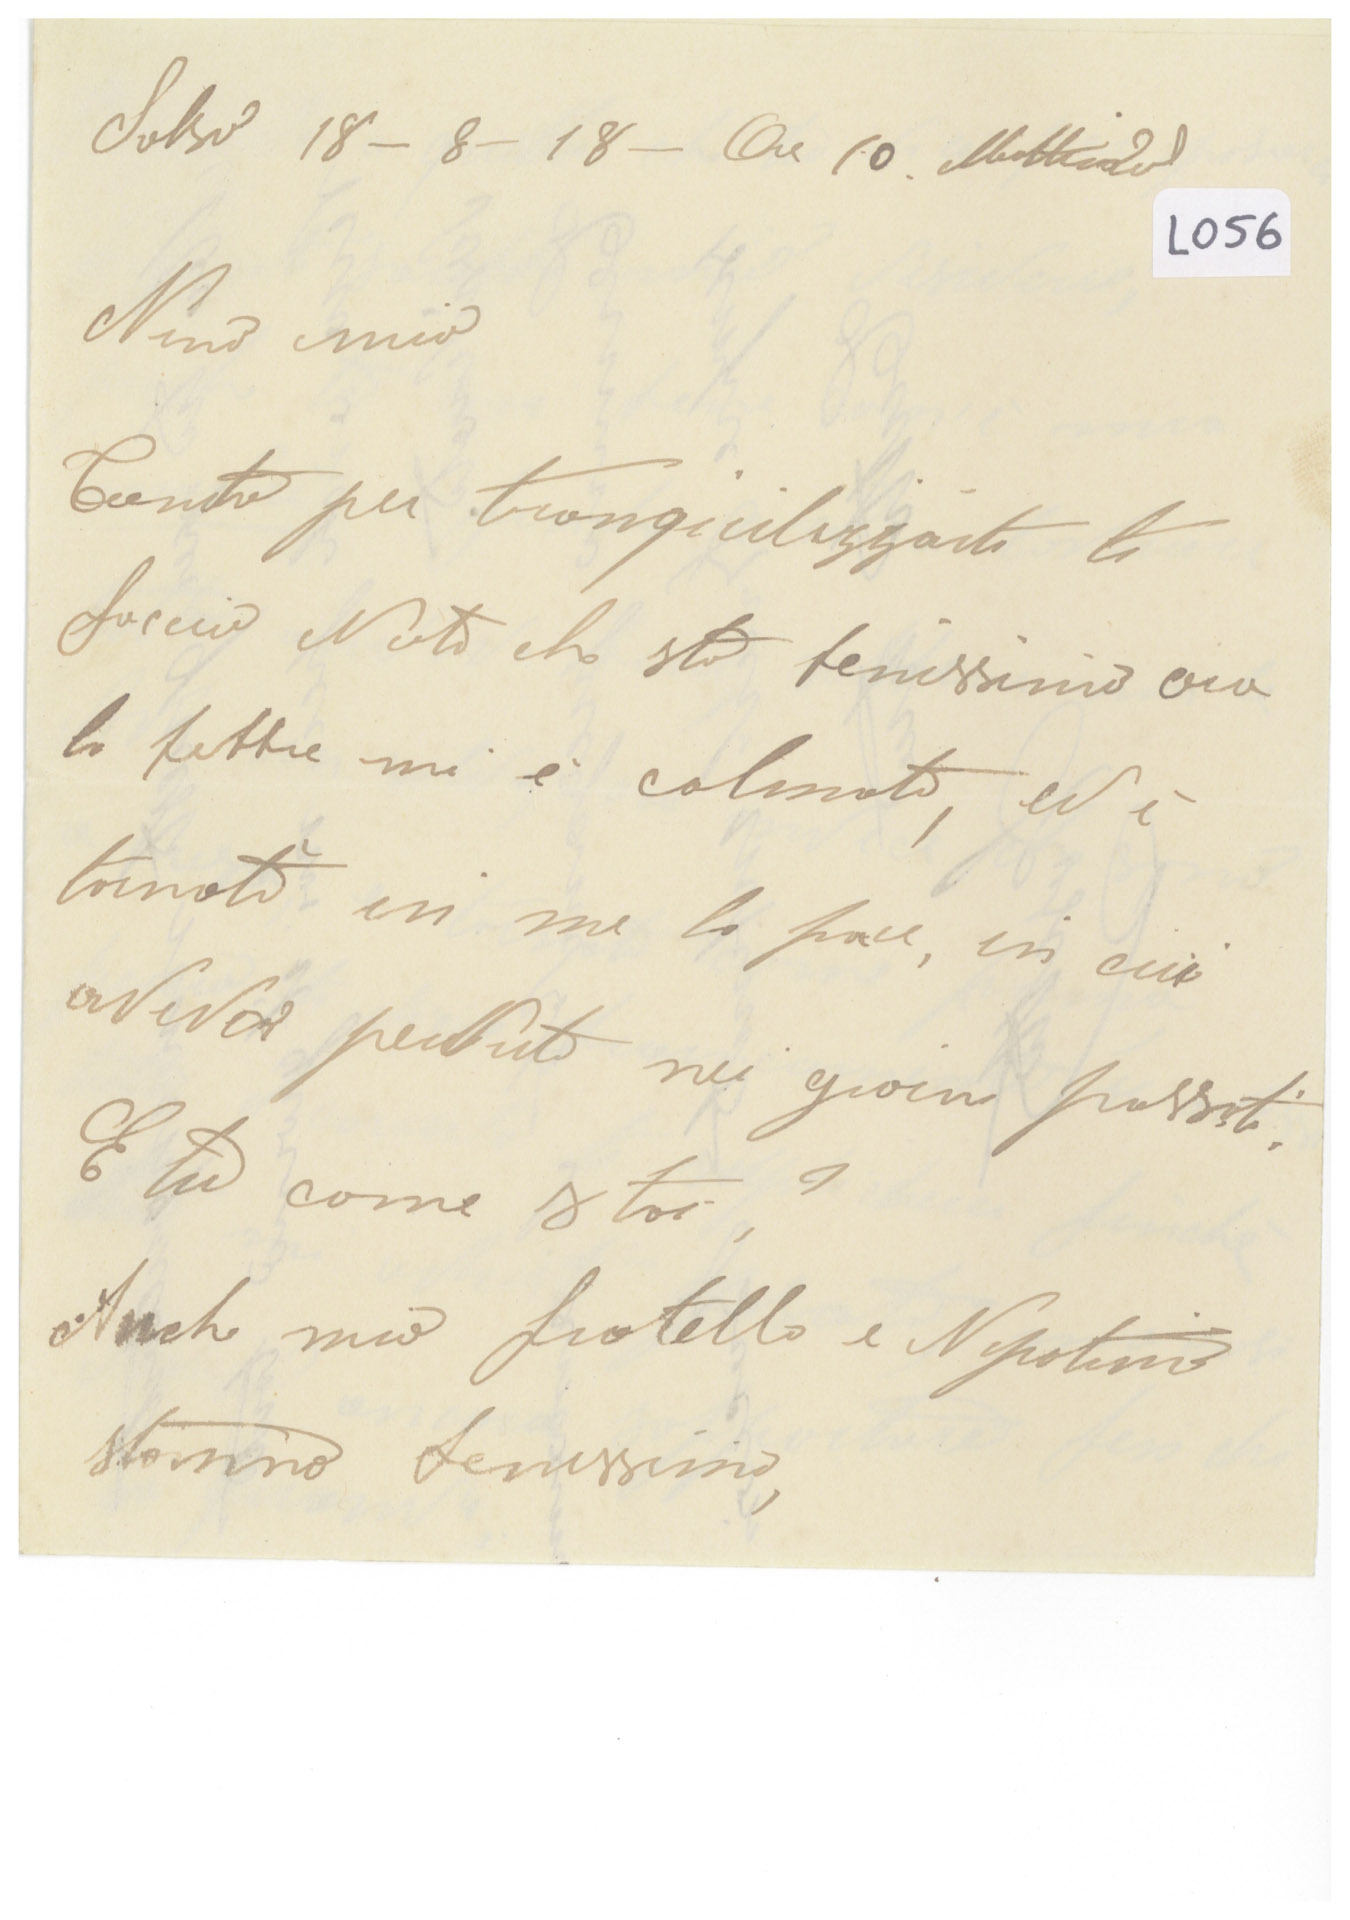 Salsò 18-8-18- Ore 10. Mattina
L056
Nino mio
Tanto per tranquilizzarti ti
faccio Noto che sto benissimo ora
la febbre mi è calmato, ed è
tornato in me la pace, in cui
aveva perduto nei giorni passati.
E tu come stai,?
Anche mio fratello e Nipotino
stanno benissimo,